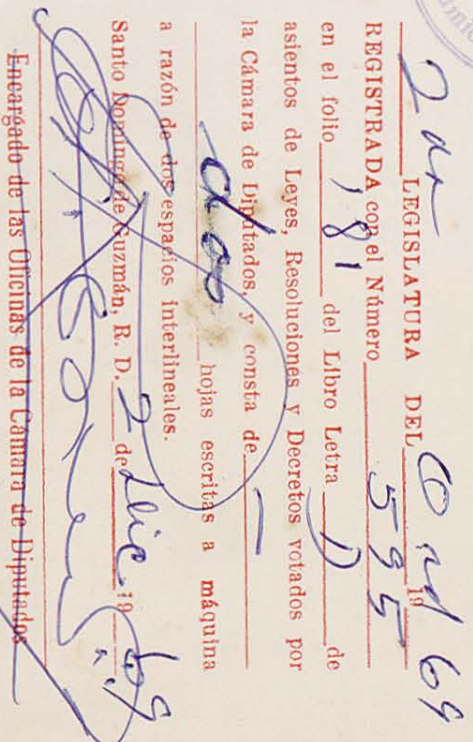 2da LEGISLATURA DEL Ord 19 69
REGISTRADA con el Número 595
en el folio 181 del Libro Letra D de
asientos de Leyes, Resoluciones y Decretos votados por
la Cámara de Diputados, y consta de
dos hojas escritas a máquina
a razón de dos espacios interlineales.
Santo Domingo de Guzmán, R. D. 2 de Dic. 19 69
Encargado de las Oficinas de la Cámara de Diputados